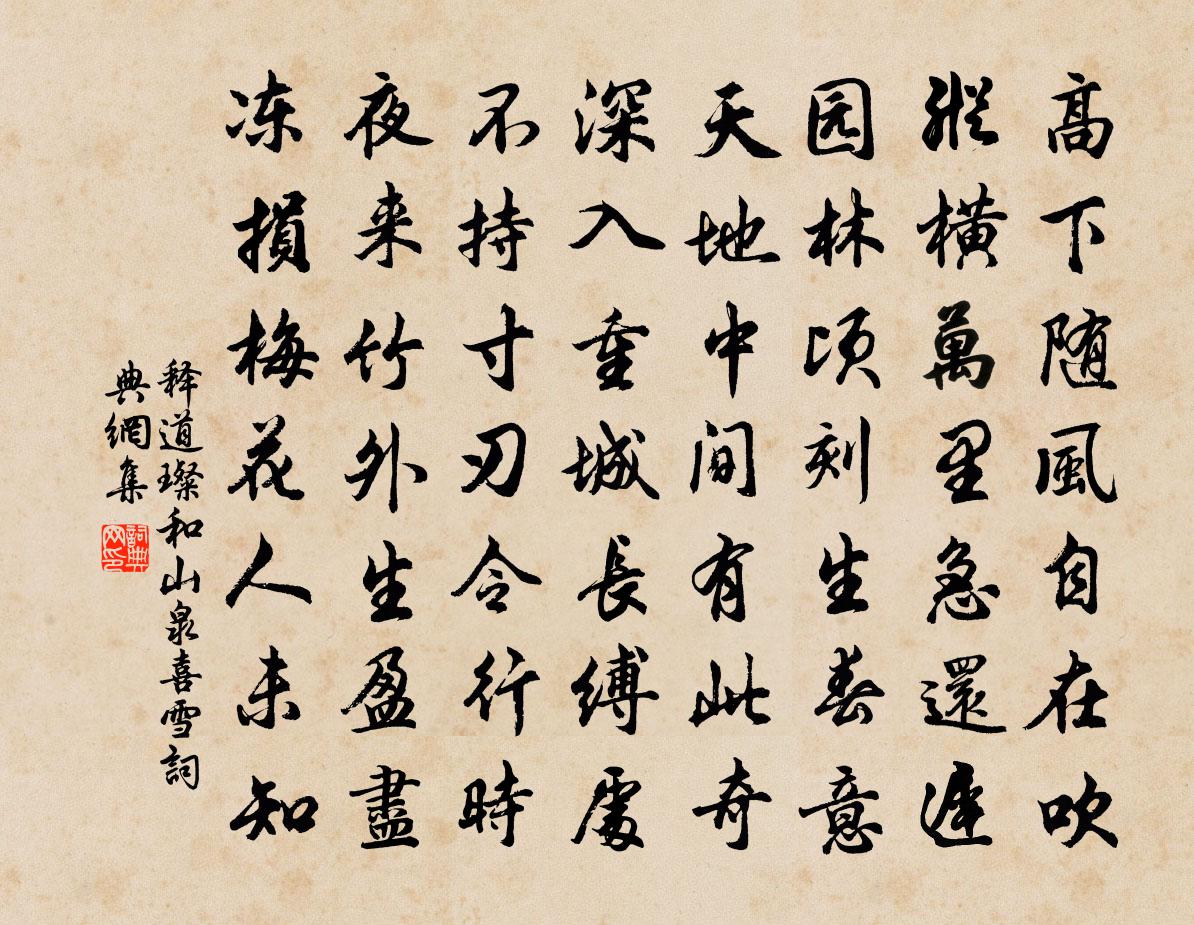 高下随風自在吹
縱横萬里急還遲
园林顷刻生春意
天地中间有此奇
深入重城長縛處
不持寸刃令行時
夜来竹外生盈盡
冻損梅花人未知
释道璨和山泉喜雪詞
典網集
詞典网印